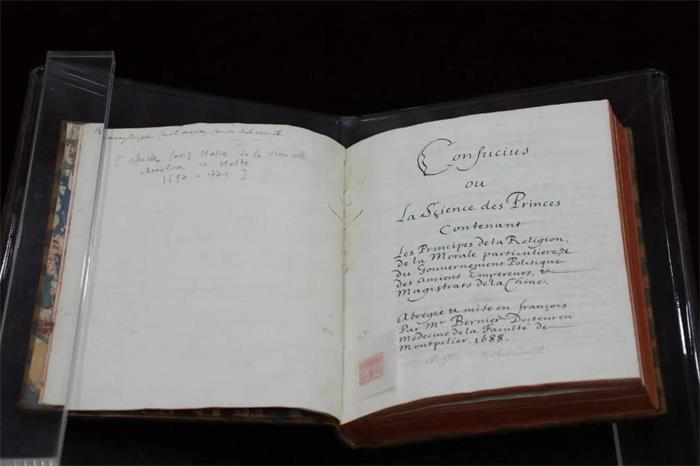 [ charles Marie de la vieuville
chevalier de Malte
1697 - 1771 ]
Confucius
ou
La Science des Princes
Contenant
Les Principes de la Religion,
de la Morale particuliere, &
du Gouvernement Politique
des Anciens Empereurs, &
Magistrats de la Chine.
Abregée & mise en françois
Par Mr. Bernier Docteur en
Médecine de la Faculté de
Montpelier. 1688.